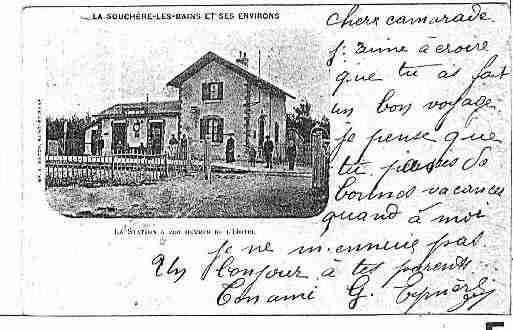 LA SOUCHÈRE-LES-BAINS ET SES ENVIRONS
cher camarade.
j'aime à croire
que tu as fait
un bon voyage
je pense que
tu passes de
bonnes vacances
quand à moi
LA STATION A 200 MÈTRES DE L'HÔTEL
je ne m'ennuie pas
Un bonjour à tes parents
Ton ami G.